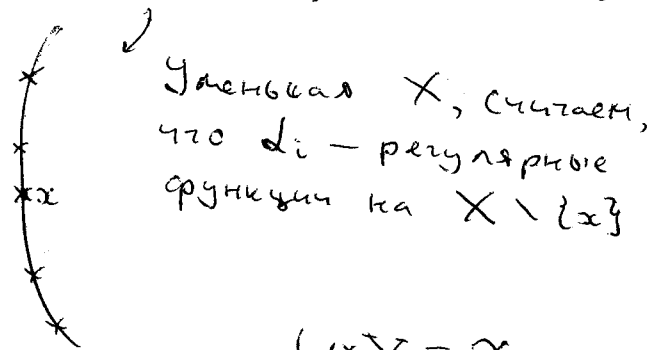 Уменьшая X, считаем,
что α_i — регулярные
x функции на X \ {x}